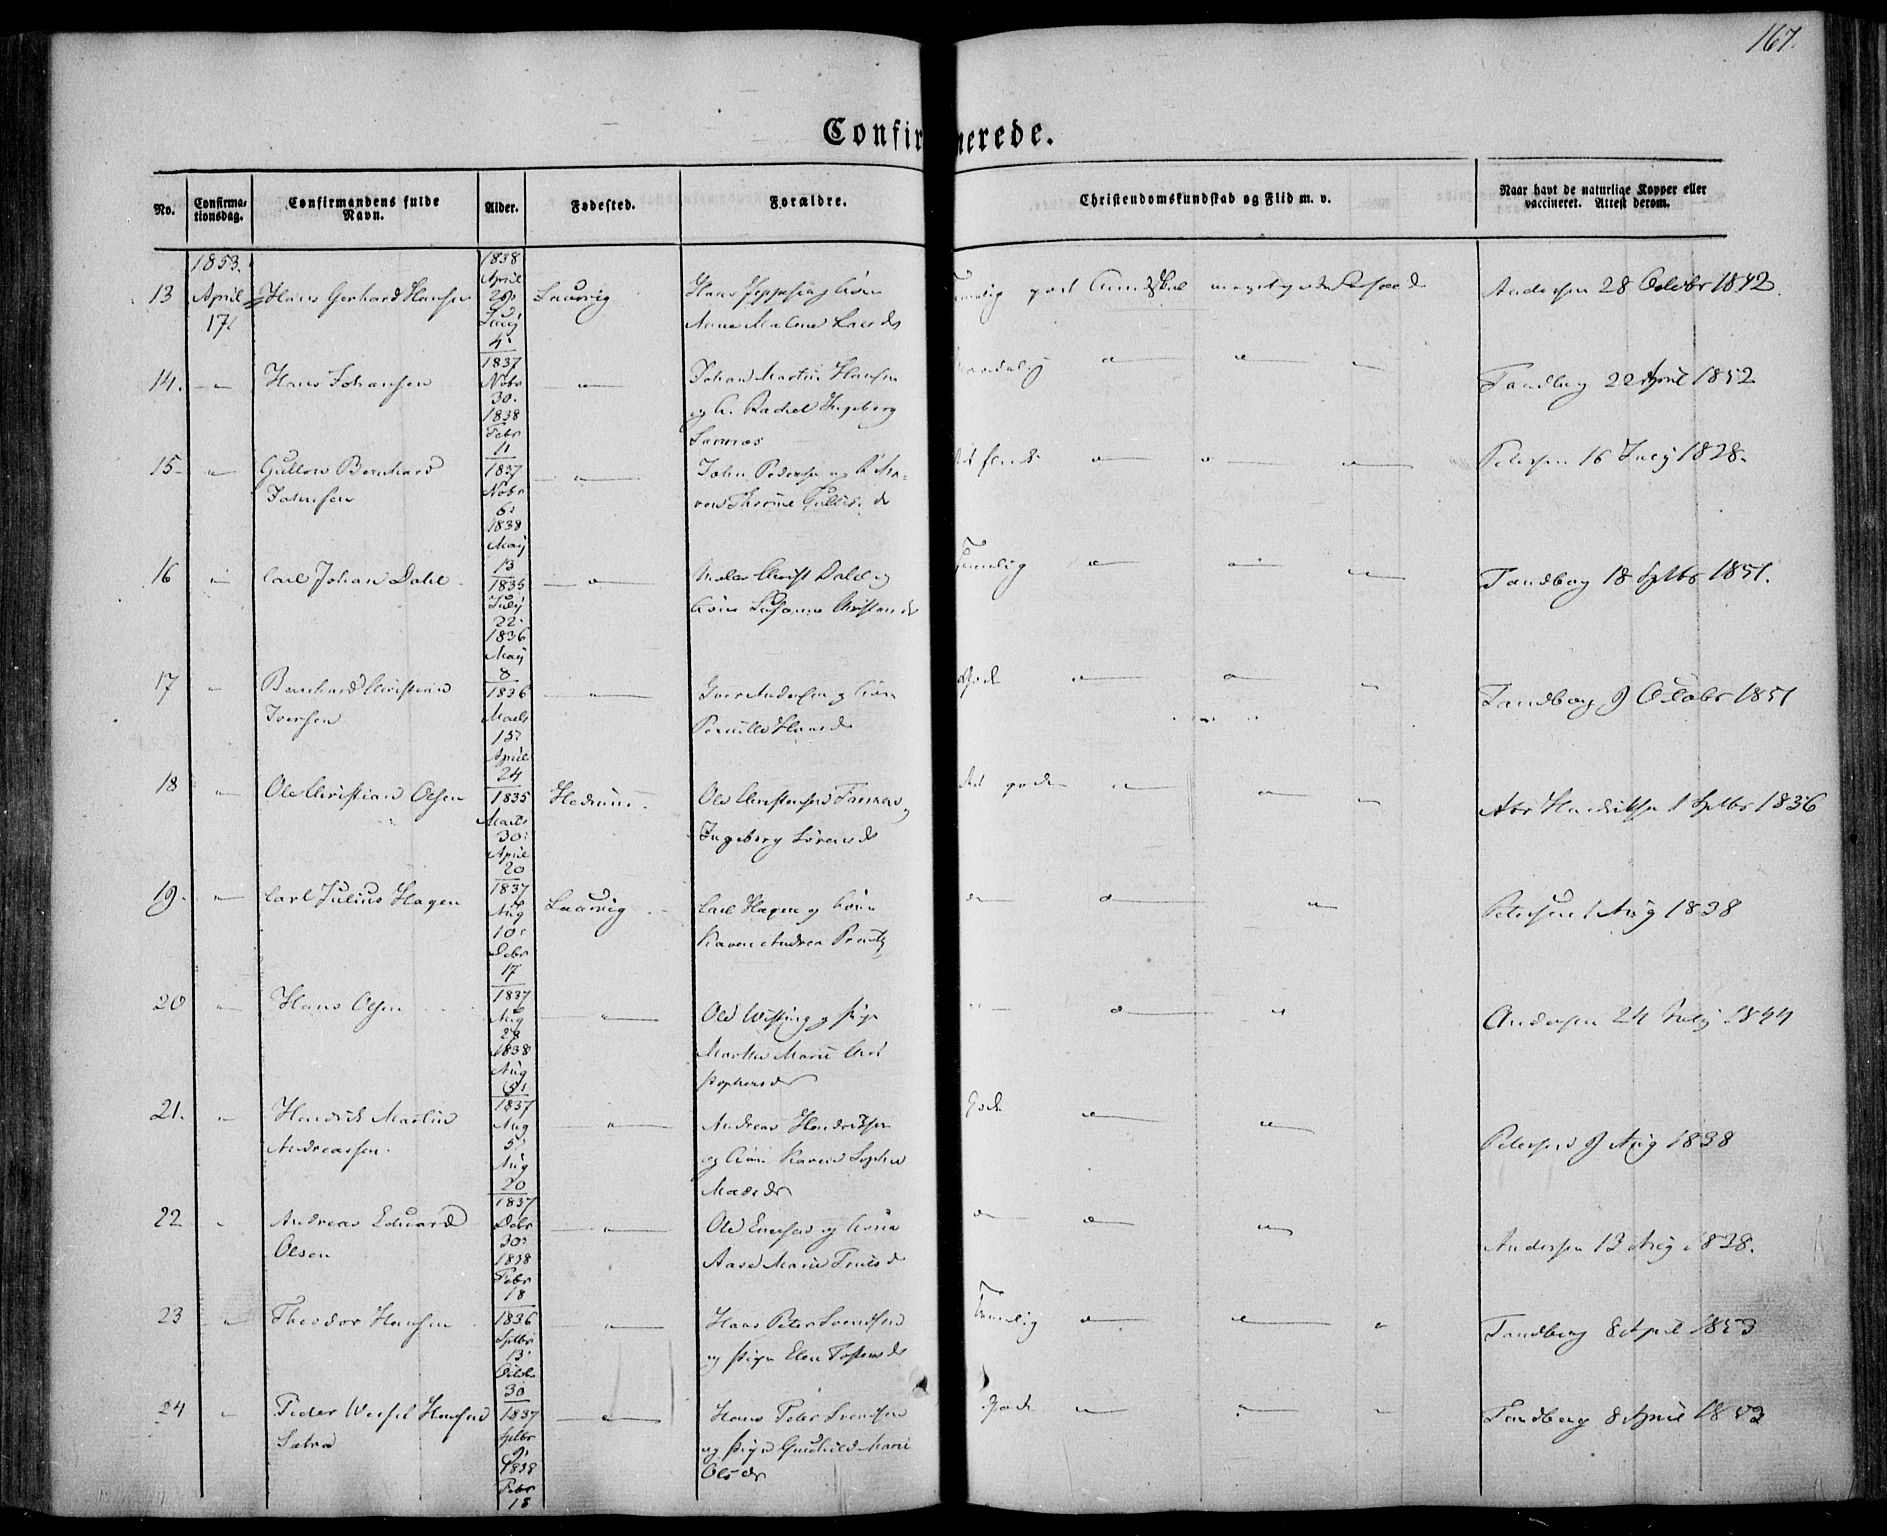 167.
Confirmerede.
No.
Confirma-
tionsdag.
Confirmandens fulde
Navn.
Alder.
Fødested.
Forældre.
Christendomskundskab og Flid m. v.
Naar havt de naturlige Kopper eller
vaccineret. Attest derom.
1853.
13 April 17 Hans Gerhard Hansen 1838 April 29 Juny 4 Laurvig Hans Jeppesen og Kone
Anne Malene Larsd
Temelig god Kundskab meget god
Andersen 28 Octobr 1842.
14. " Hans Johansen 1837 Nobr 30. 1838 Febr 11 " Johan Martin Hansen
og K. Rachel Ingeborg
Tandberg 22 April 1852
15 " Bernhard
Johnsen 1837 Nobr 6 1838 May 13 " John Pedersen og K
Petersen 16 July 1838.
16 " Carl Johan Dahl 1835 July 22 1836 May 8 " Christ Dahl og
Kone Susanne Christensd
Temelig " " "
Tandberg 18 Septbr 1851.
17 " Bernhard Christian
Iversen 1836 Marts 15 April 24 " Iver Andersen og Kone
Pernille Hansd
Gode " " "
Tandberg 9 Octobr 1851
18 " Ole Christian Olsen 1835 Marts 30 April 20 Hedrum Ole Christensen
Ingeborg Sørensd
gode " " "
Hendriksen 1 Septbr 1836
19. " Carl Julius Hagen 1837 Aug 10 Debr 17 Laurvig Carl Hagen og Kone
Karen Andrea
" " "
Petersen 1 Aug 1838
20 " Hans Olsen 1837 Aug 28 1838 Aug 5 " Ole Wisting og Pige
Marthe Marie Chri
stophersdr
" " "
Andersen 24 July 1844
21. " Hendrik Martin
Andreassen. 1837 Aug 5 Aug 20 " Andreas Hendriksen
og Kone Karen Sophie
Madsdr
Gode " "
Petersen 9 Aug 1838
22 " Andreas Eduard
Olsen 1837 Debr 30 1838 Febr 18 " Ole Evensen og Kone
Aase Marie
" " "
Andersen 13 Aug 1838.
23 " Theodor Hansen 1836 Septbr 13 Octobr 30 " Hans Peter Svendsen
og Pige Elen
Temelig " " "
Tandberg 8 April 1853
24 " Peder Wessel Hansen
1837 Septbr 9 1838 Febr 18 " Hans Peter Svendsen
og Pige Gunhild Marie
Olsdr
Gode " " "
Tandberg 8 April 1853